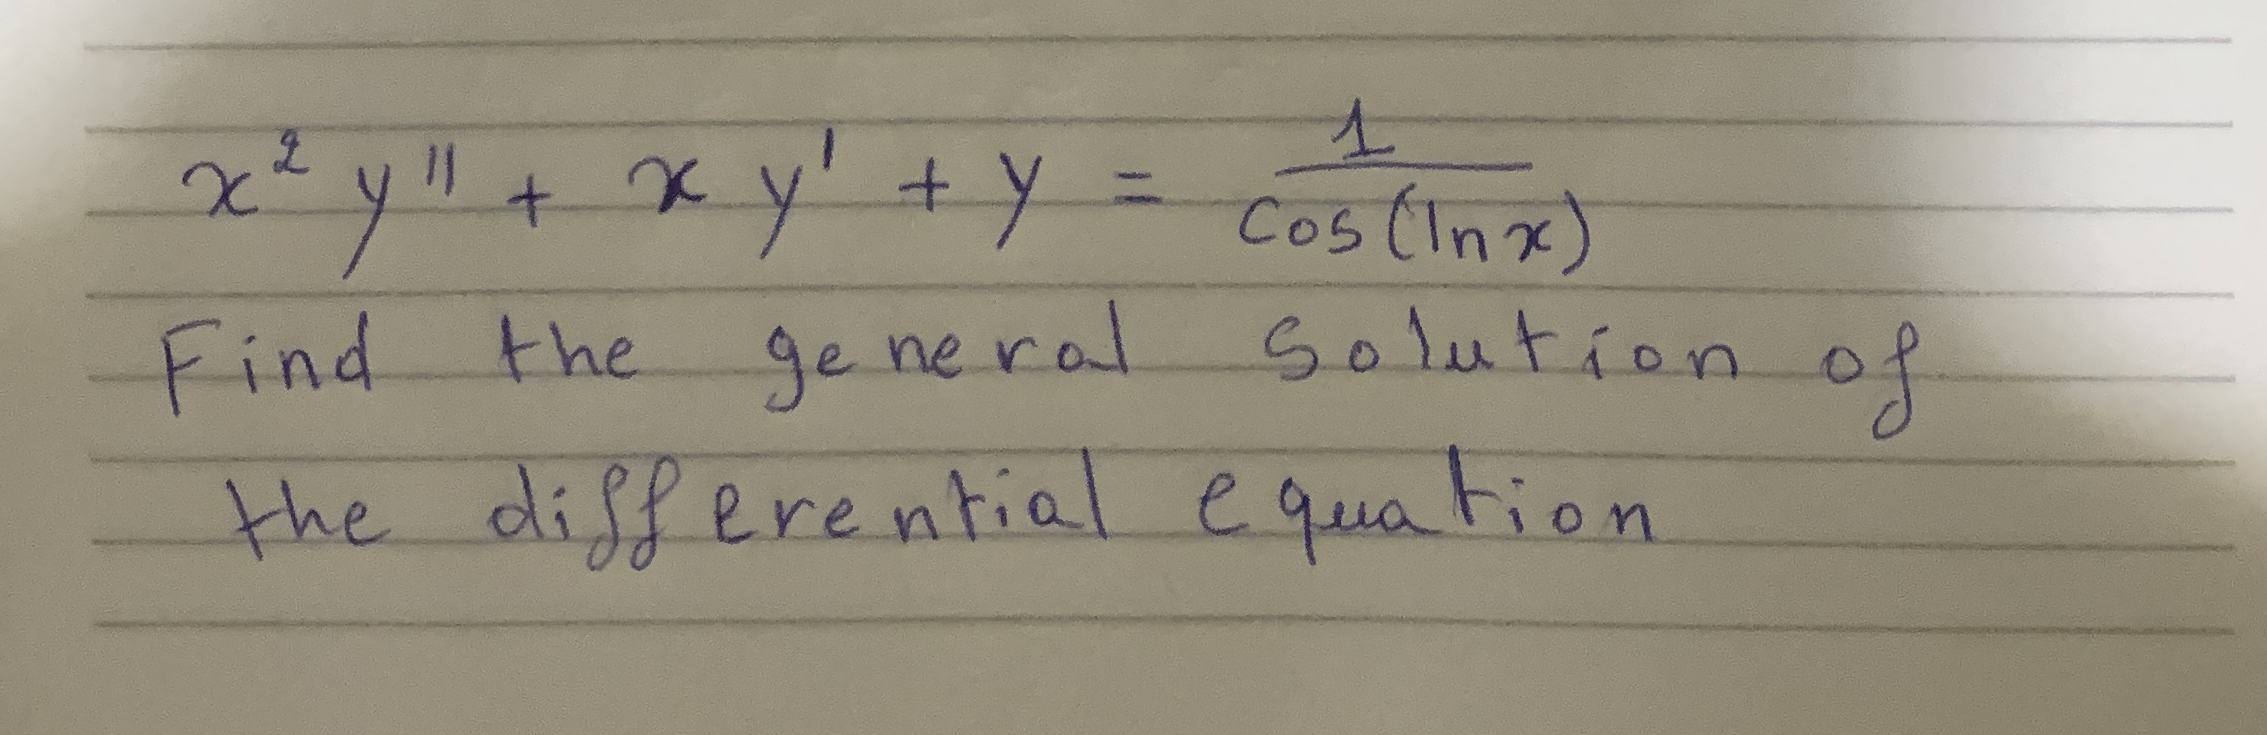 x² y'' + x y' + y = 1/cos(ln x)
Find the general solution of
the differential equation